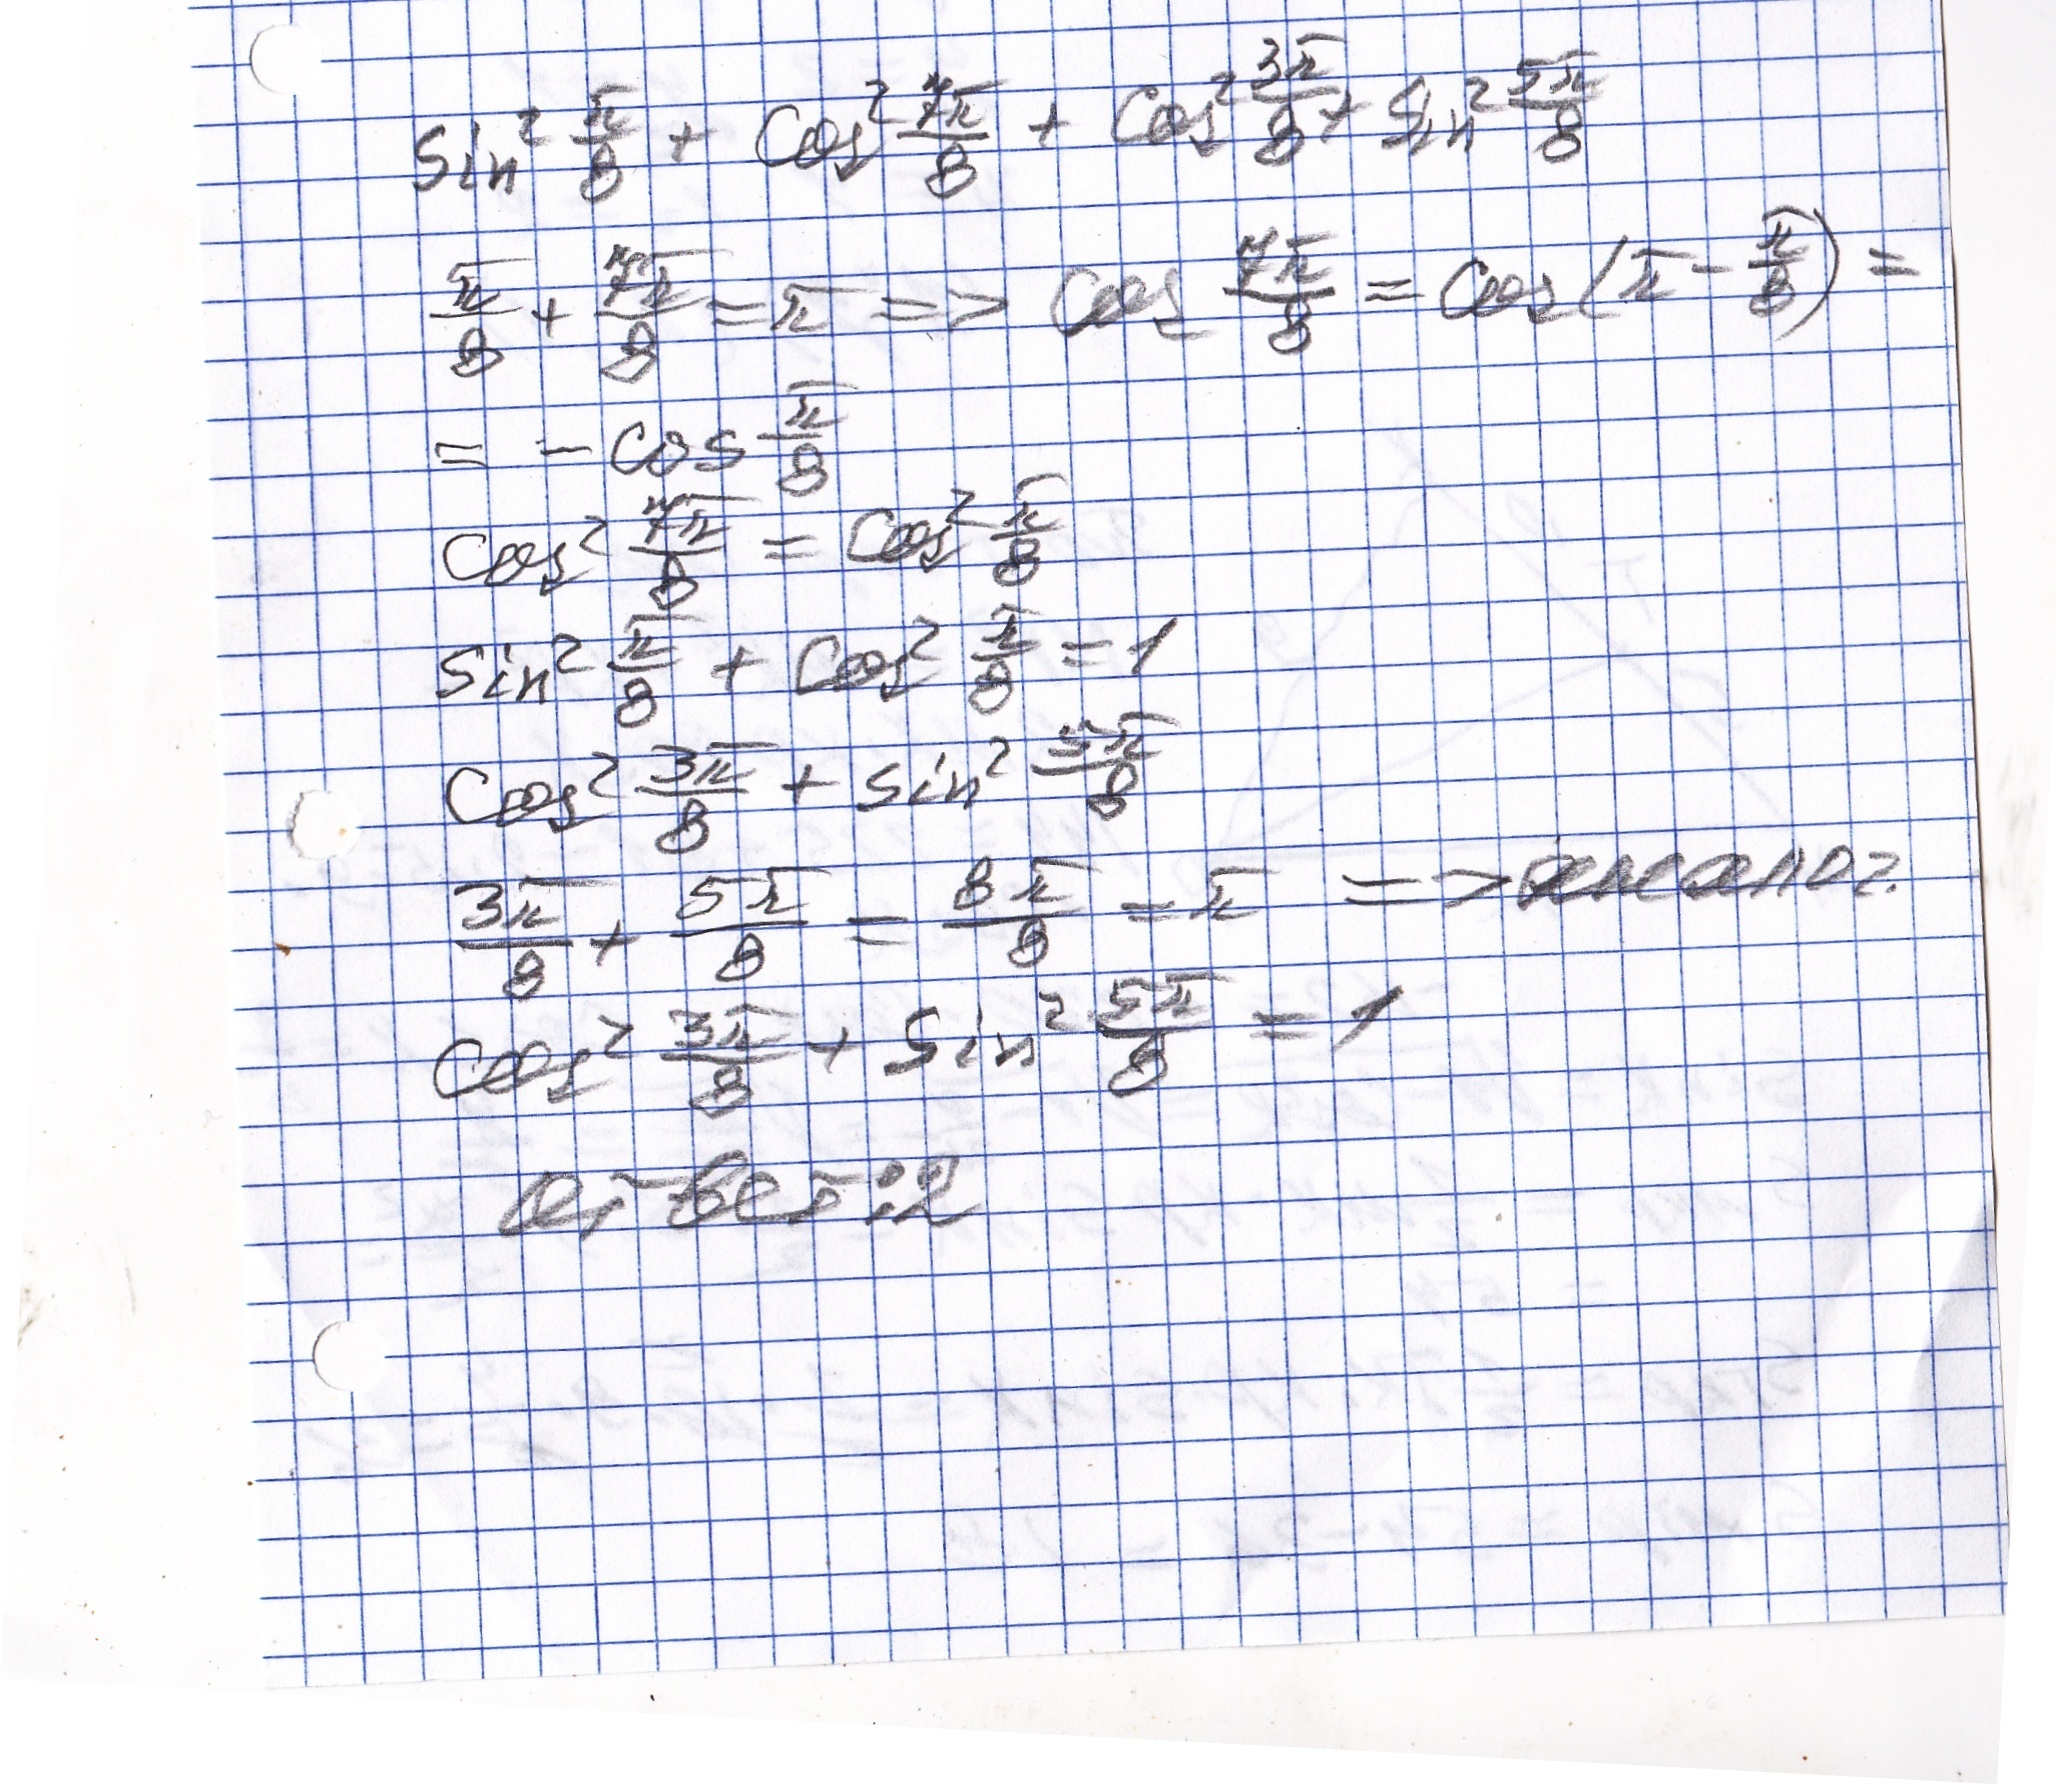 sin² π/8 + cos² 7π/8 + cos² 3π/8 + sin² 5π/8
π/8 + 7π/8 = π => cos 7π/8 = cos(π - π/8) =
= - cos π/8
cos² 7π/8 = cos² π/8
sin² π/8 + cos² π/8 = 1
cos² 3π/8 + sin² 5π/8
3π/8 + 5π/8 = 8π/8 = π =>
cos² 3π/8 + sin² 5π/8 = 1
ответ: 2